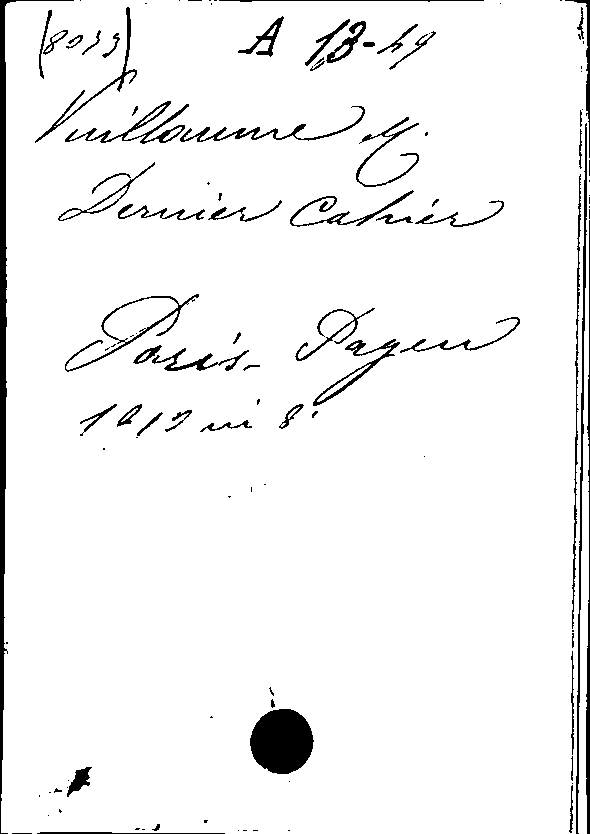 (8033) A 13-49
Vuillaume M.
Dernier Cahier
Paris- Payen
1912 in 8°